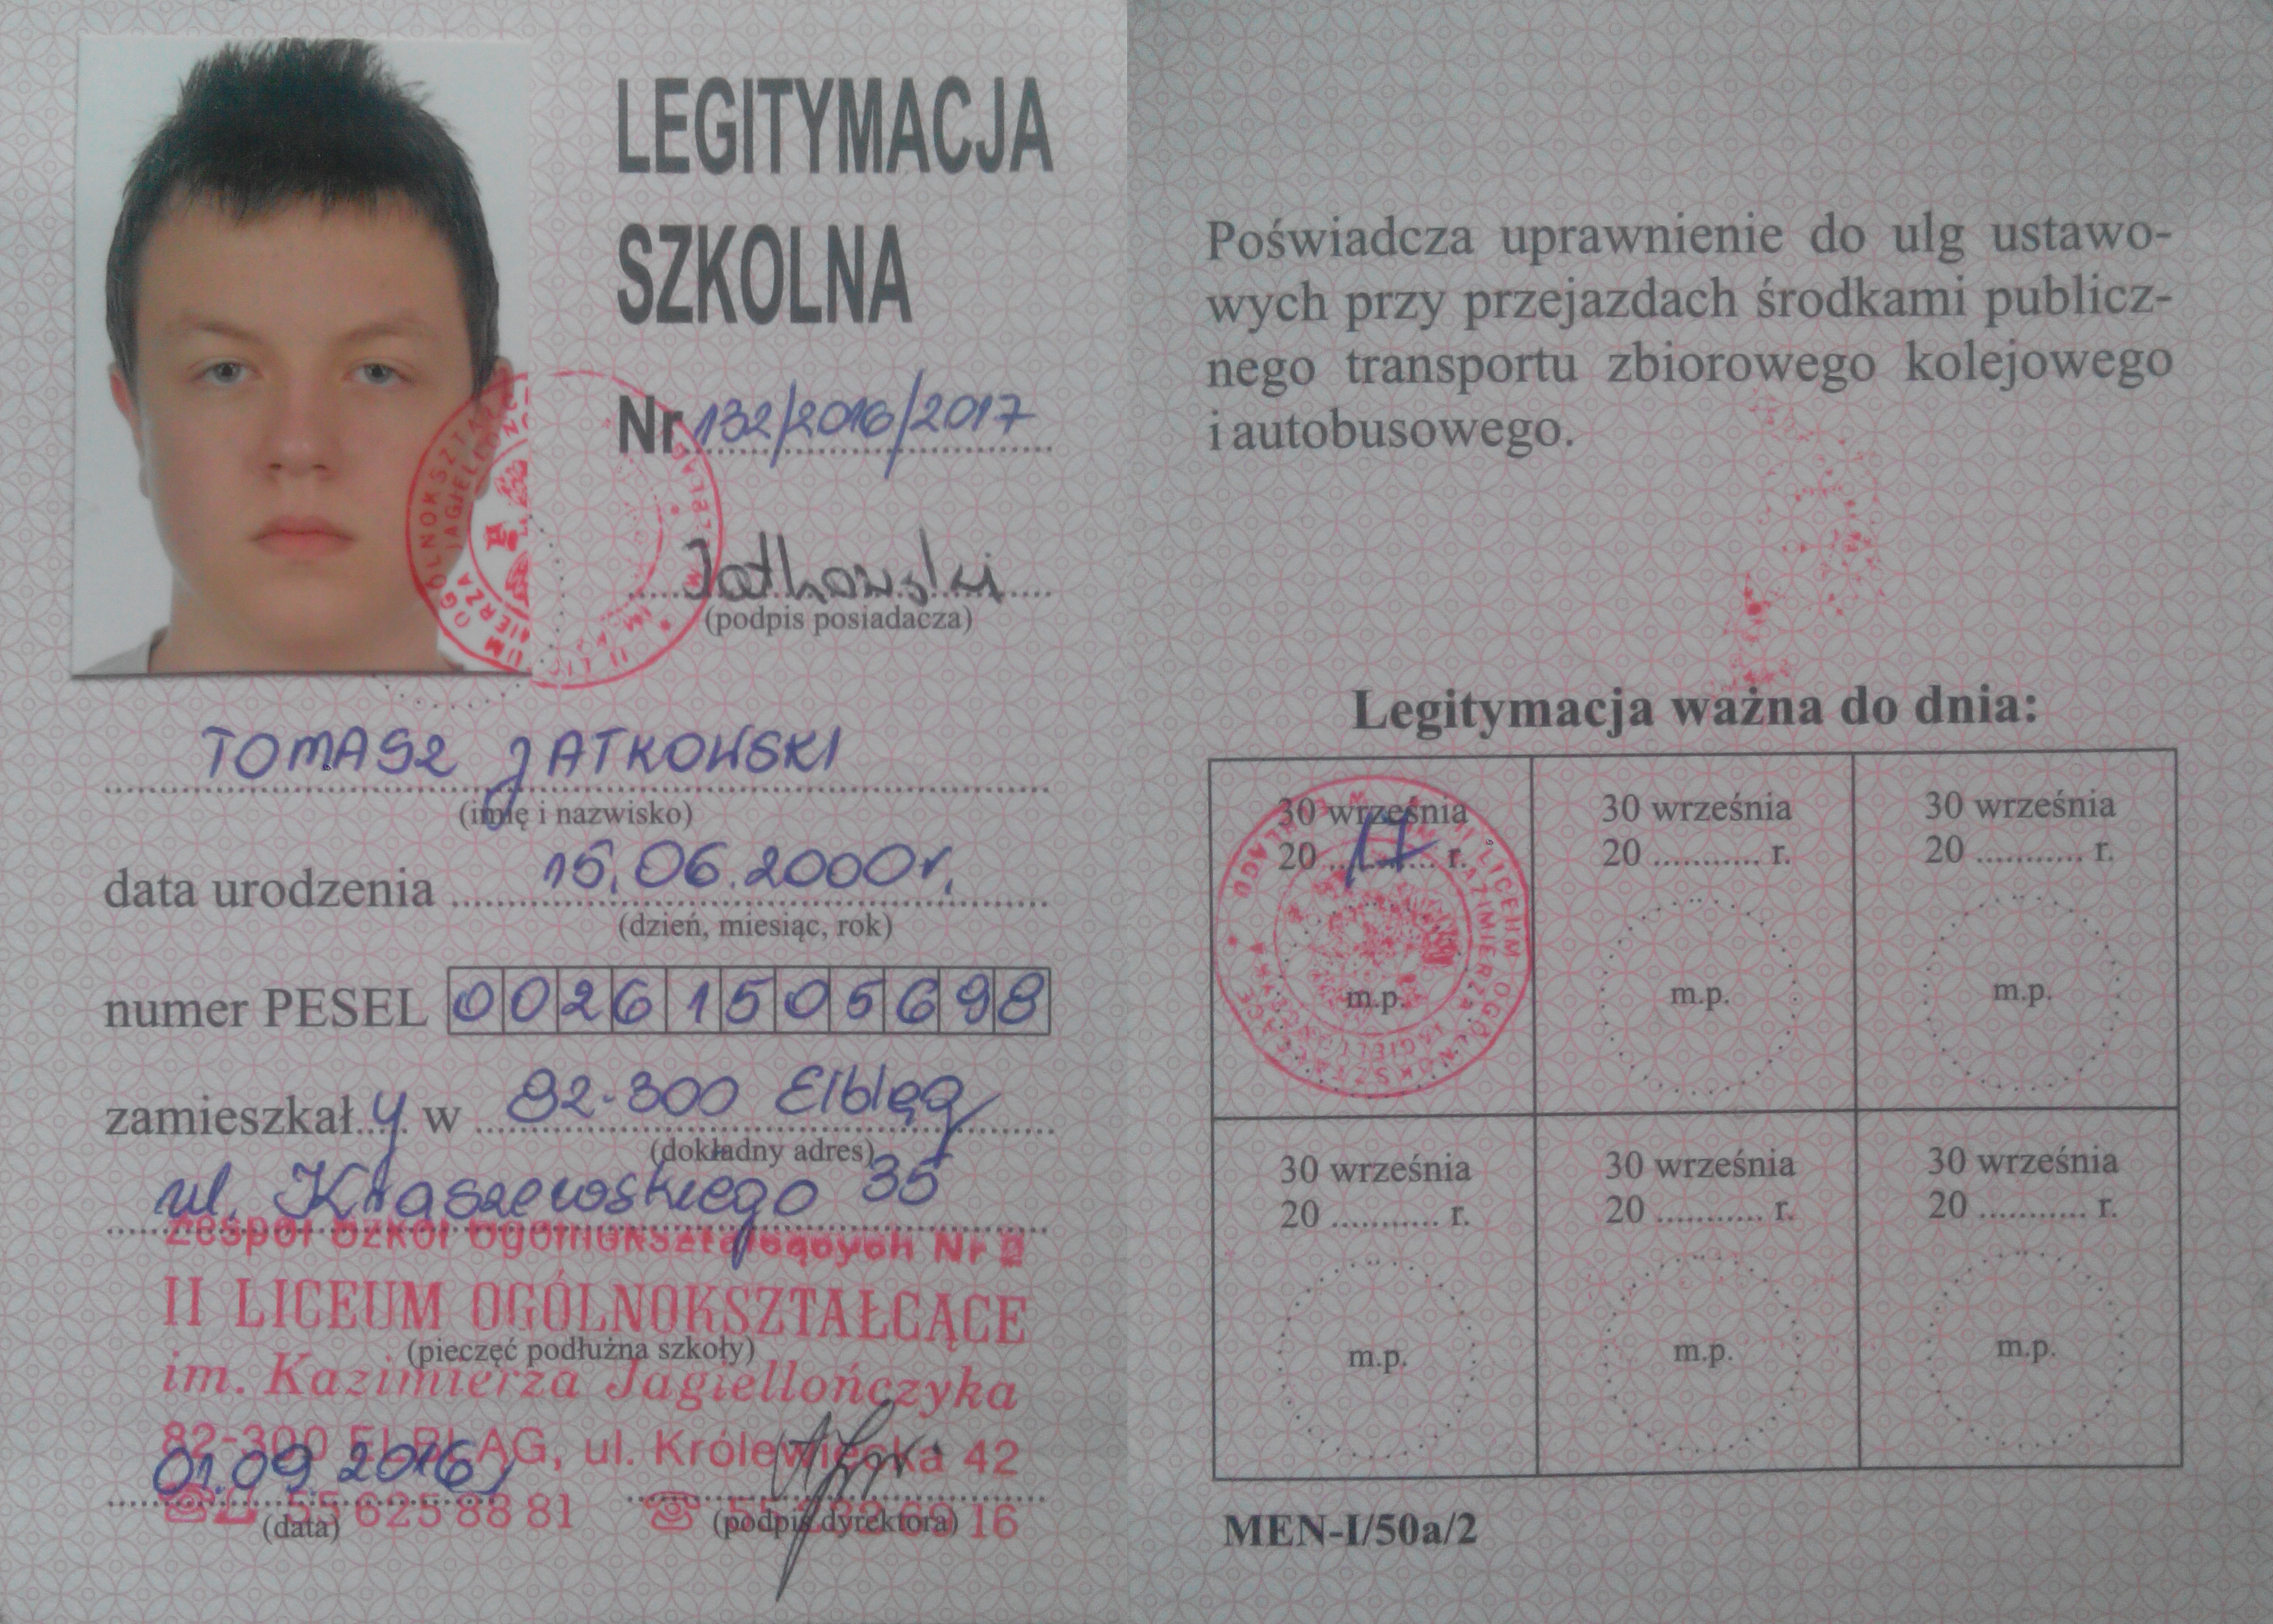 LEGITYMACJA
SZKOLNA
Nr 132/2016/2017
Jatkowski
(podpis posiadacza)
TOMASZ JATKOWSKI
(imię i nazwisko)
data urodzenia 15.06.2000r.
(dzień, miesiąc, rok)
numer PESEL 00261505698
zamieszkał y w 82-300 Elbląg
(dokładny adres)
ul. Kraszewskiego 35
Zespół Szkół Ogólnokształcących Nr 2
II LICEUM OGÓLNOKSZTAŁCĄCE
(pieczęć podłużna szkoły)
im. Kazimierza Jagiellończyka
82-300 ELBLĄG, ul. Królewiecka 42
01.09.2016
55 625 88 81 16
(data) (podpis dyrektora)
Poświadcza uprawnienie do ulg ustawo-
wych przy przejazdach środkami publicz-
nego transportu zbiorowego kolejowego
i autobusowego.
Legitymacja ważna do dnia:
30 września 30 września 30 września
20 17 r. 20 ........... r. 20 ........... r.
m.p. m.p. m.p.
30 września 30 września 30 września
20 ........... r. 20 ........... r. 20 ........... r.
m.p. m.p. m.p.
MEN-I/50a/2